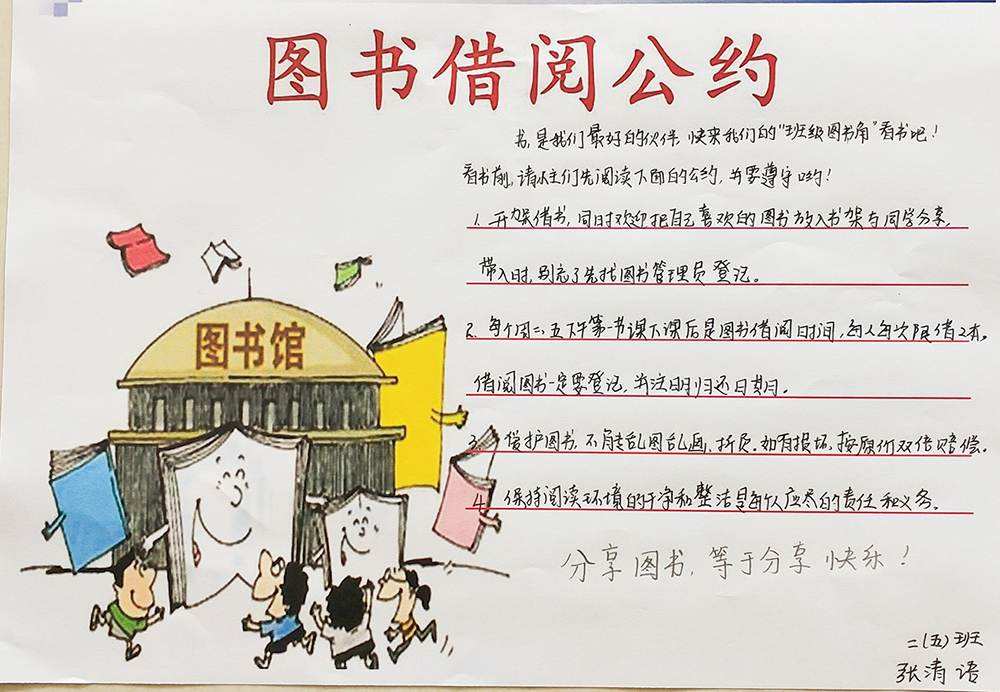 图书借阅公约
书,是我们最好的伙伴,快来我们的“班级图书角”看书吧!
看书前,请你们先阅读下面的公约,并要遵守哟!
1. 开架借书,同时欢迎把自己喜欢的图书放入书架与同学分享,
带入时,别忘了先找图书管理员登记。
2. 每个周二、五下午第一书课下课后是图书借阅时间,每人每次限借2本。
借阅图书一定要登记,并注明归还日期。
3. 爱护图书,不能乱图乱画,折页。如有损坏,按原价双倍赔偿。
4. 保持阅读环境的干净和整洁是每个人应尽的责任和义务。
分享图书,等于分享快乐!
图书馆
二(五)班
张清语